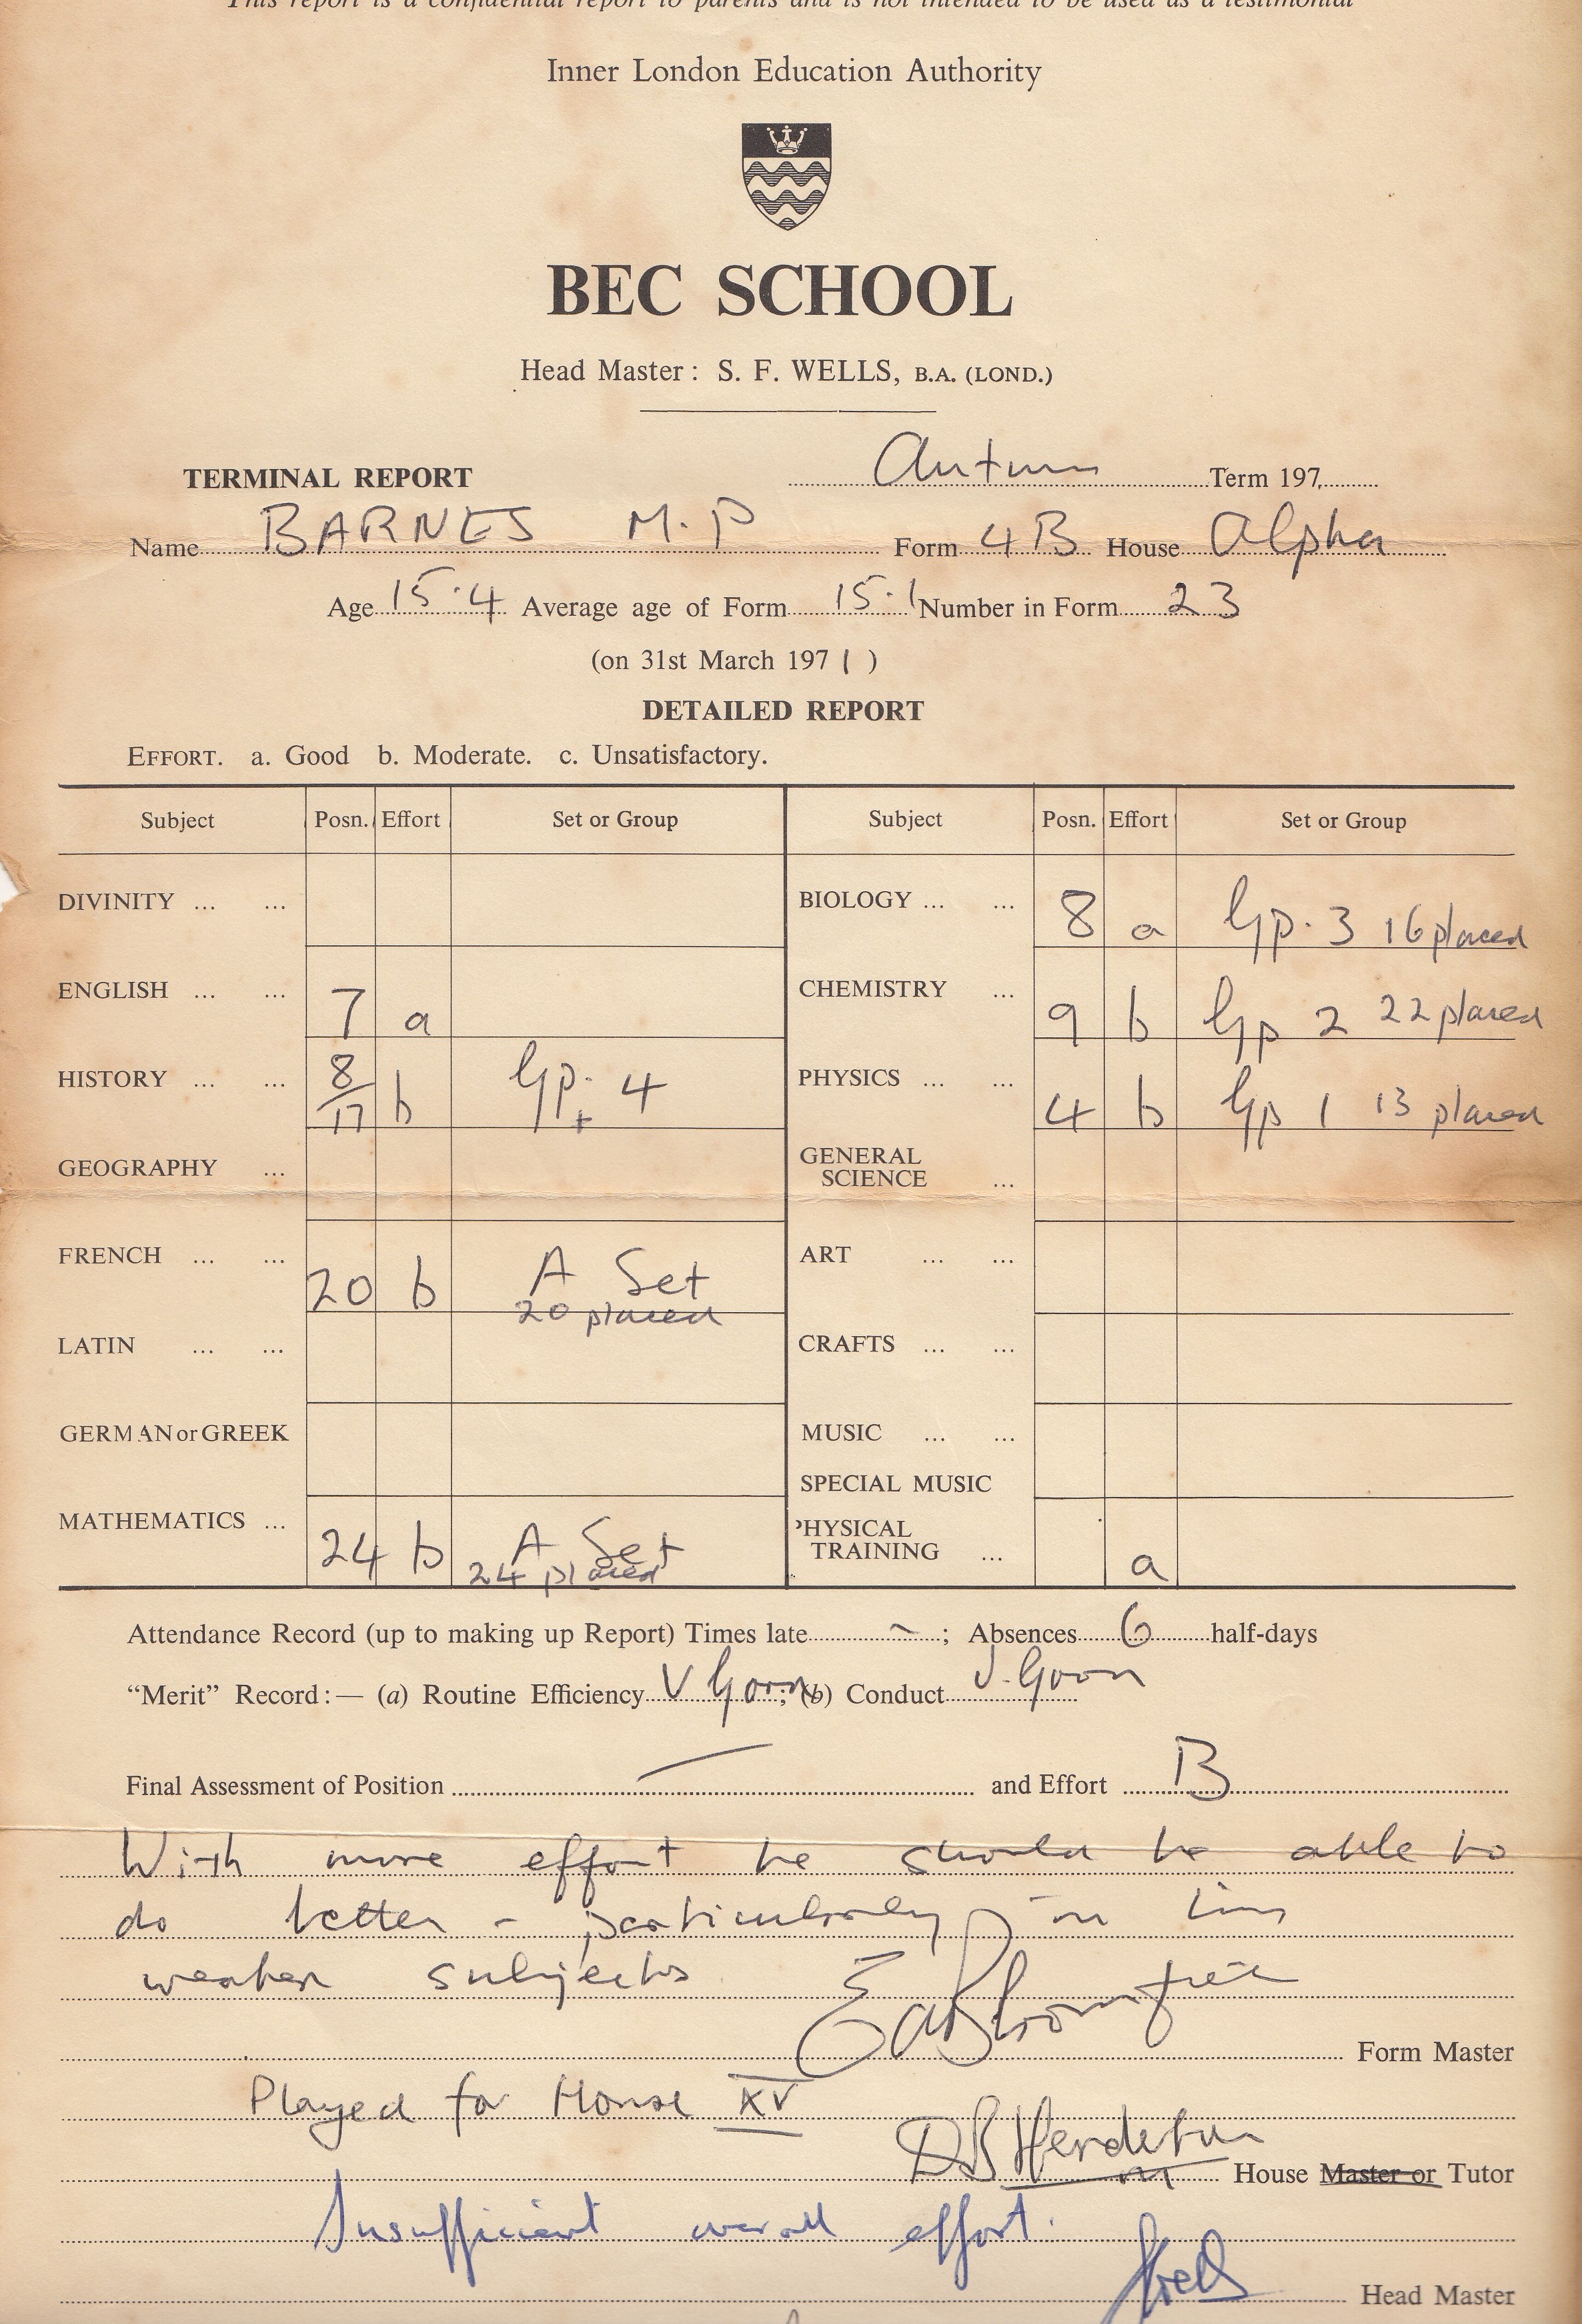 This report is a confidential report to parents and is not intended to be used as a testimonial
Inner London Education Authority
BEC SCHOOL
Head Master: S. F. WELLS, B.A. (LOND.)
TERMINAL REPORT Autumn Term 197
Name BARNES M.P Form 4B House Alpha
Age 15.4 Average age of Form 15.1 Number in Form 23
(on 31st March 1971)
DETAILED REPORT
EFFORT. a. Good b. Moderate. c. Unsatisfactory.
Subject Posn. Effort Set or Group Subject Posn. Effort Set or Group
DIVINITY ... ... BIOLOGY ... ... 8 a Gp. 3 16 placed
ENGLISH ... ... 7 a CHEMISTRY ... 9 b Gp 2 22 placed
HISTORY ... ... 8/17 b Gp. 4 PHYSICS ... ... 4 b Gp 1 13 placed
GEOGRAPHY ... GENERAL
SCIENCE ...
FRENCH ... ... 20 b A Set ART ... ...
20 placed
LATIN ... ... CRAFTS ... ...
GERMAN or GREEK MUSIC ... ...
SPECIAL MUSIC
MATHEMATICS ... 24 b A Set PHYSICAL
24 placed TRAINING ... a
Attendance Record (up to making up Report) Times late ~; Absences 6 half-days
"Merit" Record:— (a) Routine Efficiency V Good; (b) Conduct V. Good
Final Assessment of Position — and Effort B
With more effort he should be able to
do better - particularly in his
weaker subjects
Form Master
Played for House XV
House Master or Tutor
Insufficient overall effort.
Head Master